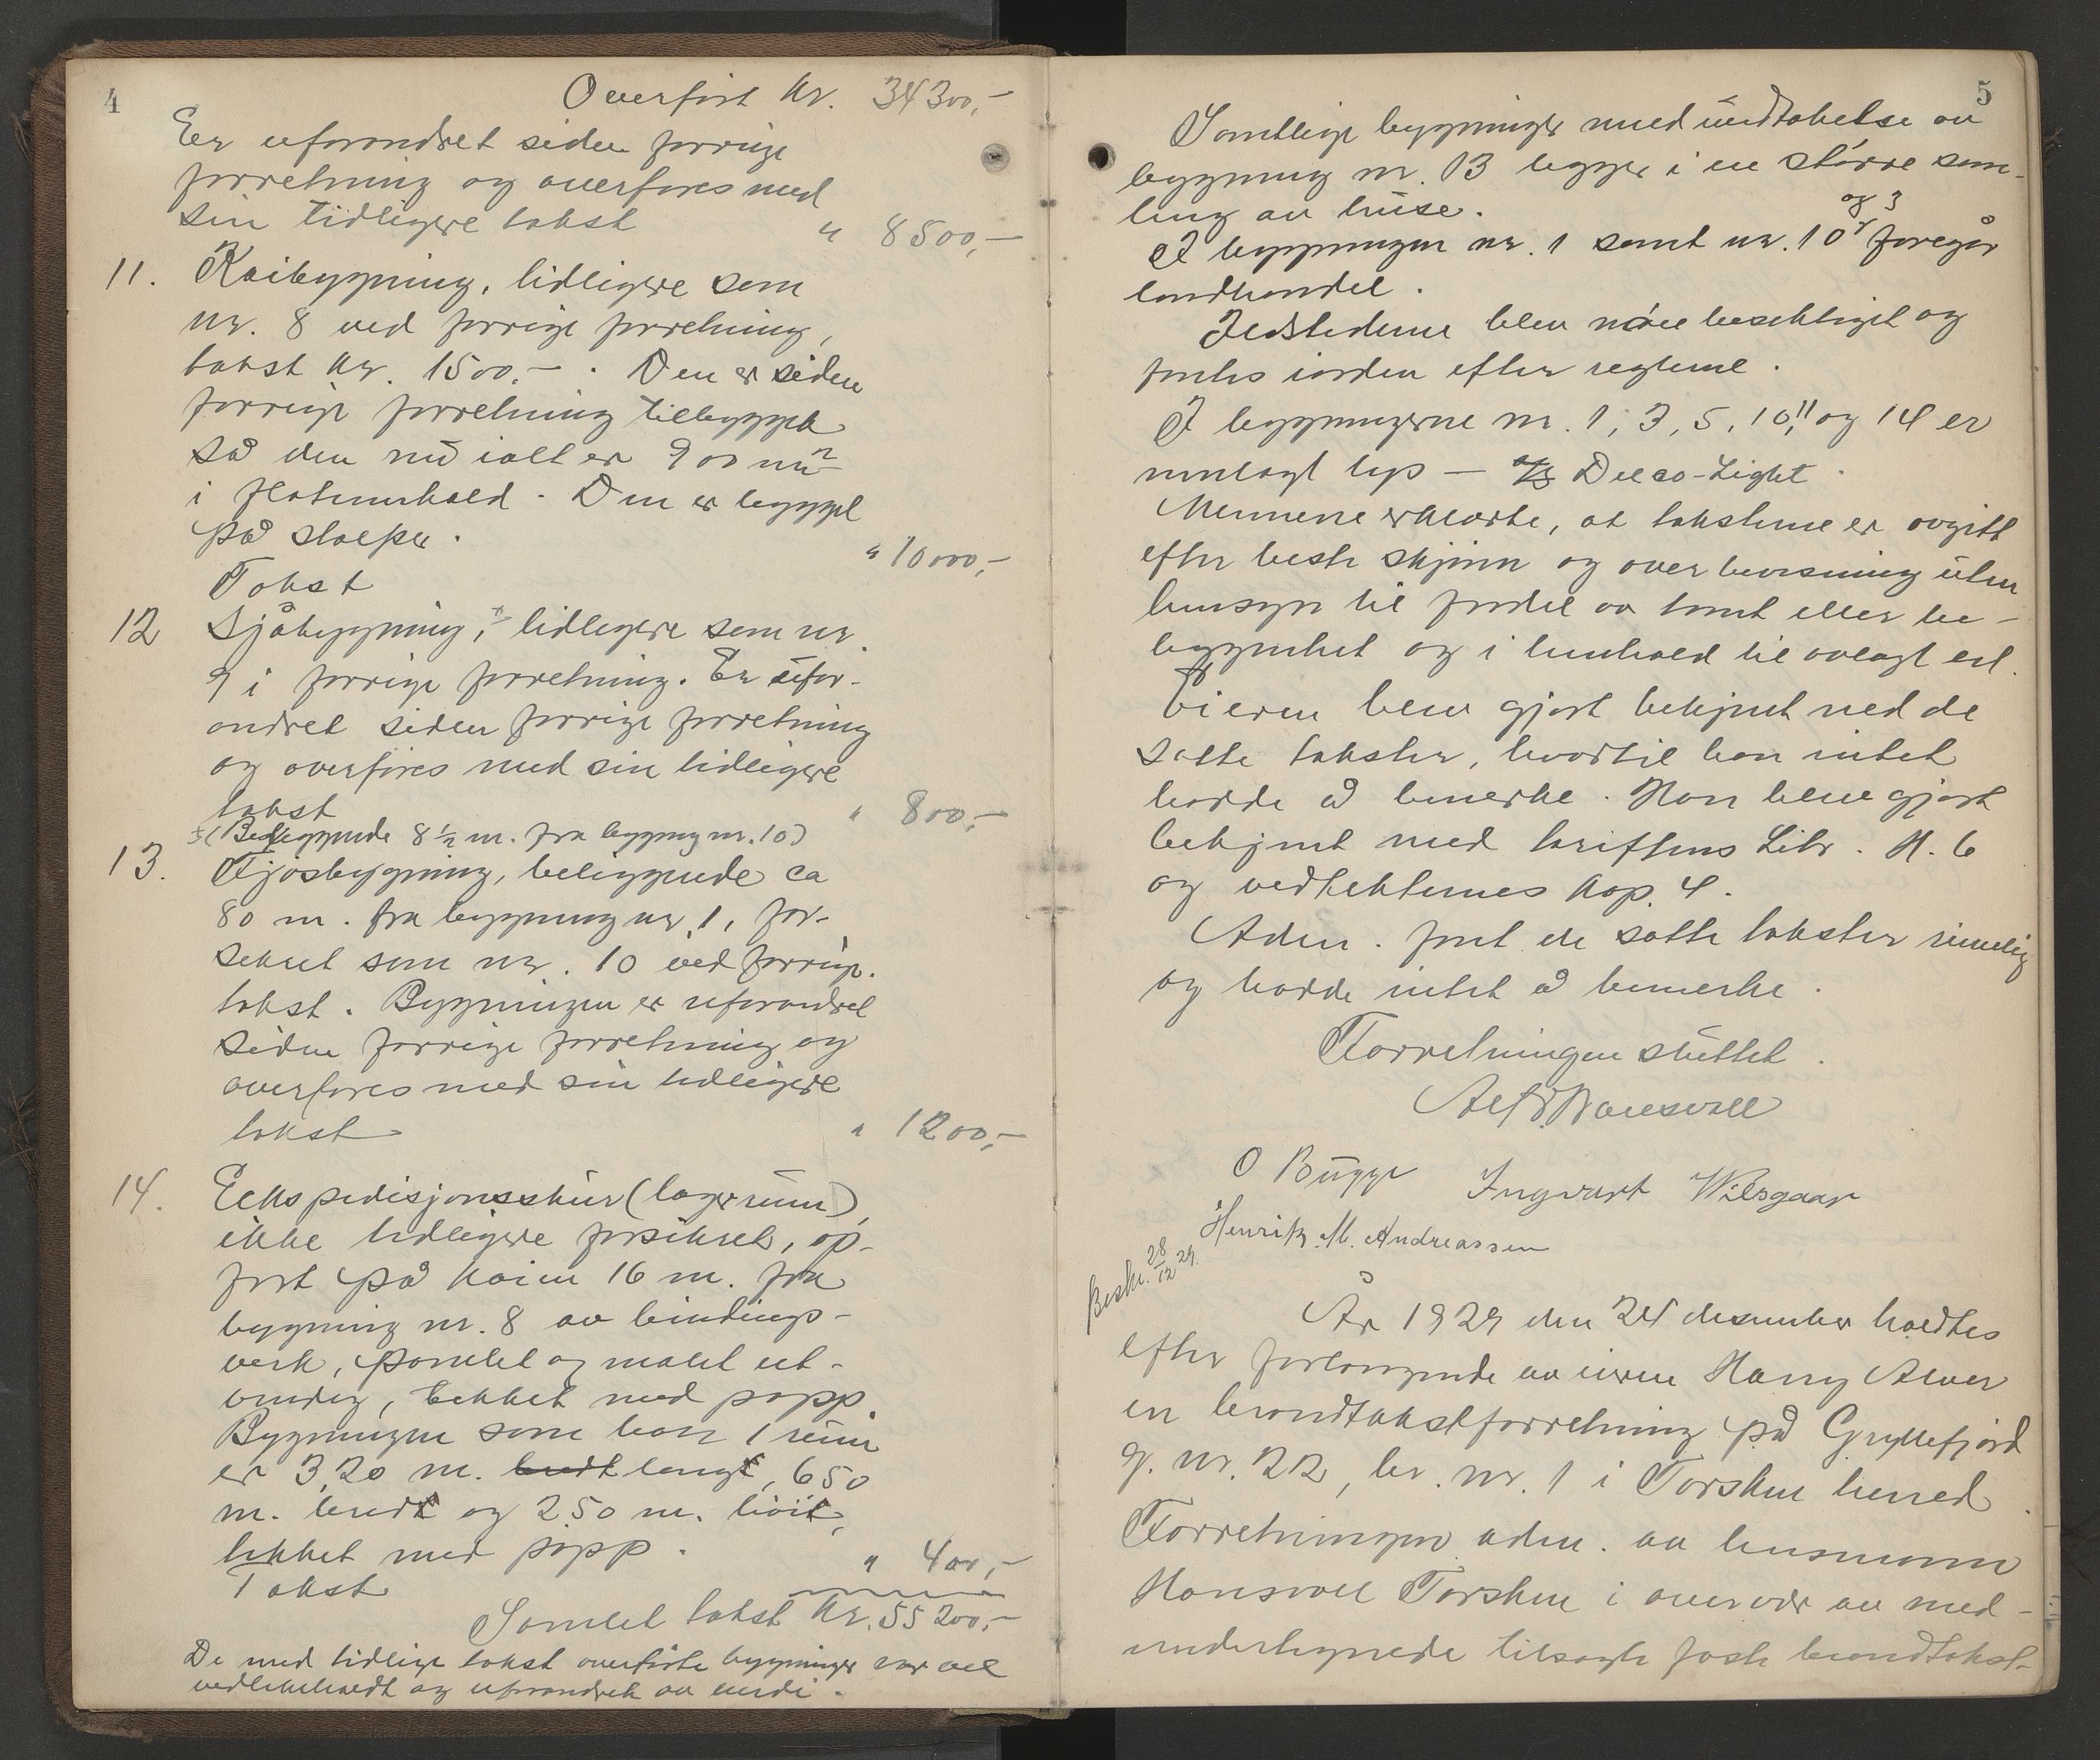 4
Overført kr. 34300,-
Er uforandret siden forrige
forretning og overføres med
sin tidligere takst " 8500,-
11. Kaibygning, tidligere som
nr. 8 ved forrige forretning,
takst kr. 1500.- . Den er siden
forrige forretning tilbygget
så den nu ialt er 900 m²
i flateinnhold. Den er bygget
på stolper.
Takst " 10000,-
12 Sjåbygning, x tidligere som nr.
9 i forrige forretning. Er ufor-
andret siden forrige forretning
og overføres med sin tidligere
takst " 800,-
x (Beliggende 8½ m. fra bygning nr. 10)
13. Fjøsbygning, beliggende ca
80 m. fra bygning nr. 1, for-
sikret som nr. 10 ved forrige
takst. Bygningen er uforandret
siden forrige forretning og
overføres med sin tidligere
takst " 1200,-
14. Ekspedisjonsskur (lagerrum),
ikke tidligere forsikret, op-
ført på kaien 16 m. fra
bygning nr. 8 av bindings-
verk, panelet og malet ut-
vendig, tekket med papp.
Bygningen som har 1 rum
er 3,20 m. bredt langt, 6,50
m. bredt og 2,50 m. høit,
tekket med papp.
Takst " 400,-
Samlet takst kr. 55200,-
De med tidligere takst overførte bygninger var vel
vedlikeholdt og uforandret av verdi.
5
Samtlige bygninger med undtakelse av
bygning nr. 13 ligger i en større sam-
ling av huse.
og 3
I bygningen nr. 1 samt nr. 10 foregår
landhandel.
Ildstederne blev nøie besiktiget og
fantes iorden efter reglene.
I bygningerne nr. 1, 3, 5, 10, 11 og 14 er
innlagt lys — Delco-Light.
Mennene erklærte, at takstene er avgitt
efter beste skjønn og overbevisning uten
hensyn til fordel av tomt eller be-
liggenhet og i henhold til avlagt ed.
Eieren blev gjort bekjent med de
satte takster, hvortil han intet
hadde å bemerke. Han blev gjort
bekjent med tariffens Litr. H. 6
og vedtekternes kap. 4.
Adm. fant de satte takster rimelig
og hadde intet å bemerke.
Forretningen sluttet.
O Bugge Ingvart Wilsgaar
Henrik. M. Andreassen
Beskr. 28/12 29.
År 1929 den 24 desember holdtes
efter forlangende av eieren Harry Alver
en brandtakstforretning på Gryllefjord
g. nr. 22, br. nr. 1 i Torsken herred.
Forretningen adm. av lensmann
Hansvoll Torsken i overvær av med-
undertegnede tilsagte faste brandtakst-